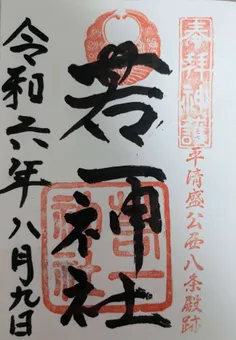 奉拝神詣
平清盛公西八条殿跡
若一神社
令和六年八月九日